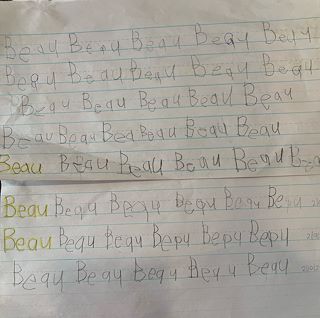 Beau Beau Beau Beau Beau
Beau Beau Beau Beau Beau
Beau Beau Beau Beau Beau
Beau Beau Bea Beau Beau Beau
Beau Beau Beau Beau Beau Bea
Beau Beau Beau Beau Beau Beau
Beau Beau Beau Bepu Bepu Bepu
Beau Beau Beau Beau Beau